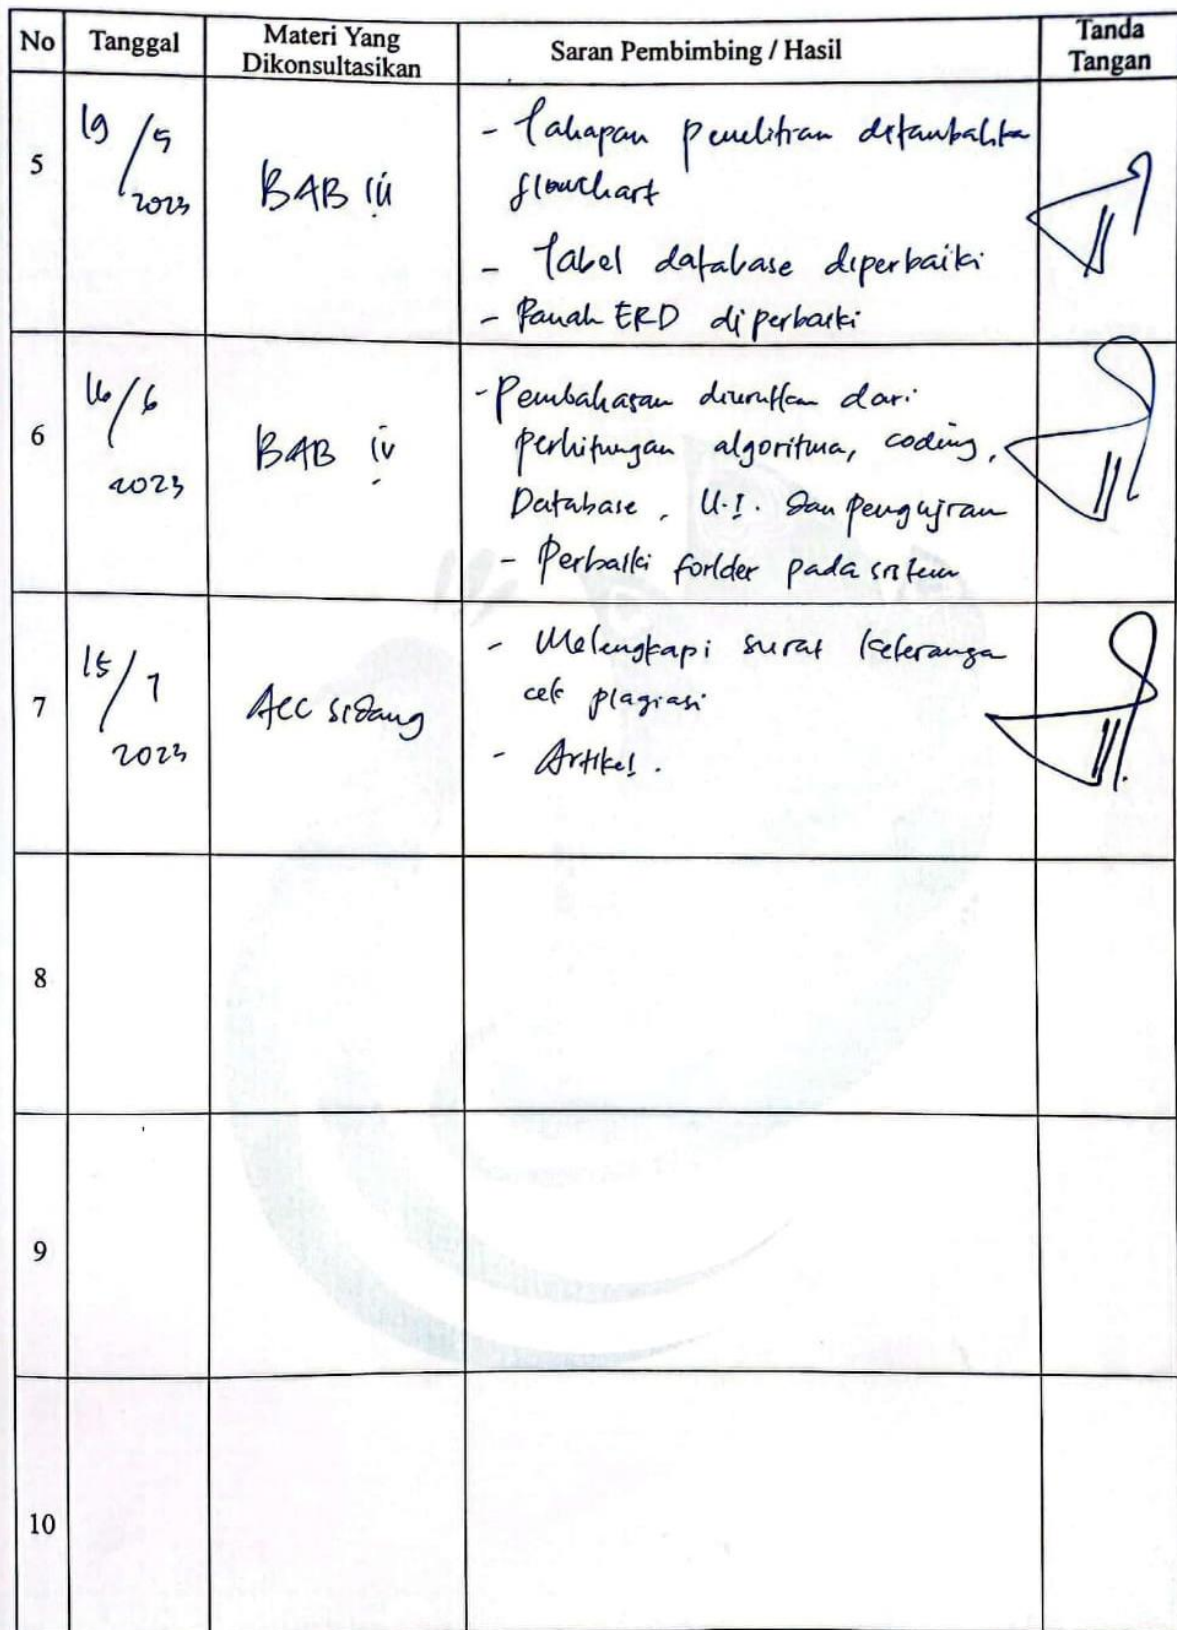 No Tanggal Materi Yang Dikonsultasikan Saran Pembimbing / Hasil Tanda Tangan
5
19/5
2023
BAB iii
- Tahapan penelitian ditambahka
flowchart
- Tabel database diperbaiki
- Panah ERD diperbaiki
6
16/6
2023
BAB iv
- Pembahasan diurutkan dari
perhitungan algoritma, coding,
Database, U.I. dan pengujian
- Perbaiki forlder pada sistem
7
15/7
2023
Acc sidang
- Melengkapi surat keteranga
cek plagiasi
- Artikel.
8
9
10